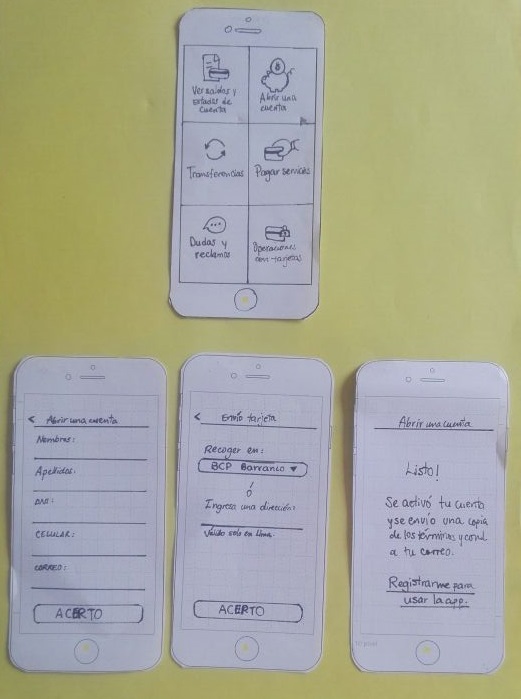 Ver saldos y
estados de
cuenta
Abrir una
cuenta
Transferencias
Pagar servicios
Dudas y
reclamos
Operaciones
con tarjetas
< Abrir una cuenta
Nombres:
Apellidos:
DNI:
CELULAR:
CORREO:
ACERTO
< Envío tarjeta
Recoger en:
BCP Barranco ▼
ó
Ingresa una dirección:
Válido solo en Lima.
ACERTO
Abrir una cuenta
Listo!
Se activó tu cuenta
y se envío una copia
de los términos y cond.
a tu correo.
Registrarme para
usar la app.